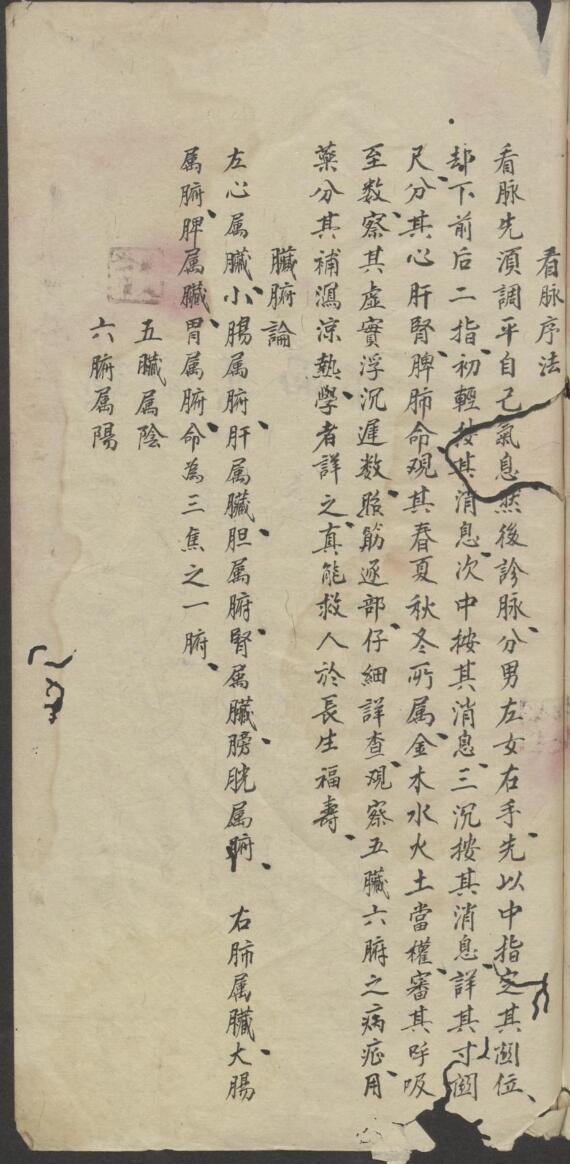 看脉序法
看脉先須調平自己氣息然後診脉、分男左女右手、先以中指定其關位、
却下前后二指、初輕按其消息、次中按其消息、三沉按其消息、詳其寸關
尺、分其心肝腎、脾肺命、观其春夏秋冬所属、金木水火土當權、審其呼吸
至数、察其虚實浮沉遲数、筋逐部、仔細詳查、观察五臓六腑之病症、用
藥分其補瀉凉熱、學者詳之、真能救人於長生福壽、
臓腑論
左心属臓、小腸属腑、肝属臓、胆属腑、腎属臓、膀胱属腑、右肺属臓、大腸
属腑、脾属臓、胃属腑、命為三焦之一腑、
五臓属陰
六腑属陽